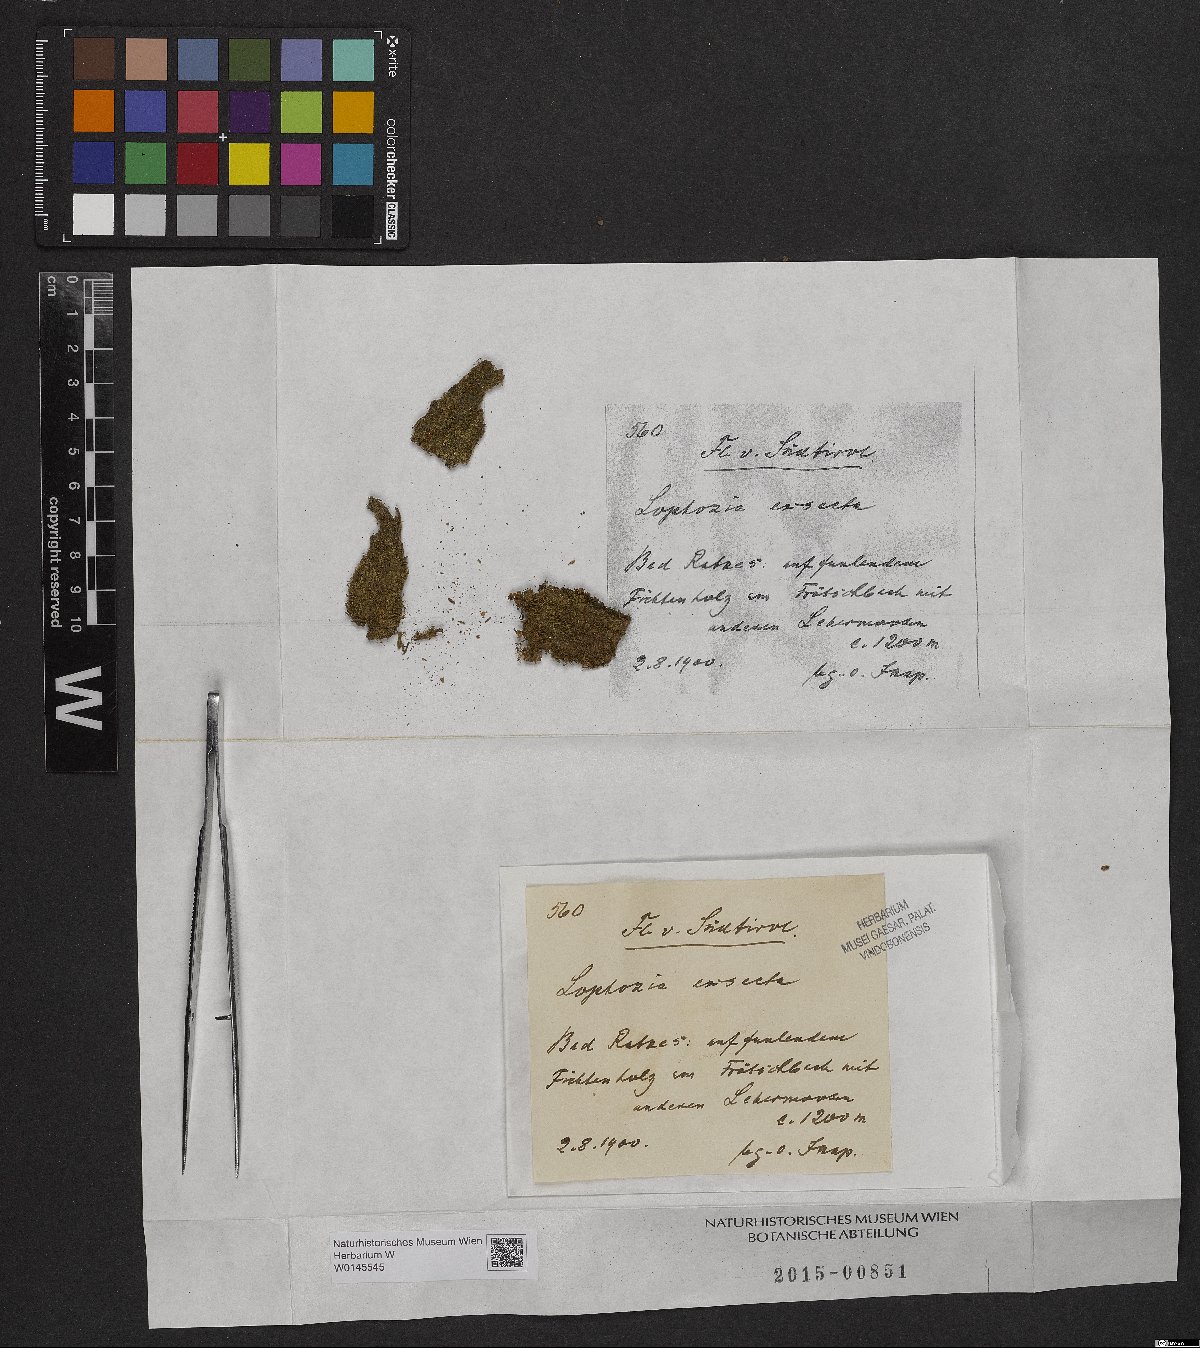 x-rite
colorchecker CLASSIC
mm
cm
0 1 2 3 4 5 6 7 8 9 10
copyright reserved
W
560
Fl. v. Südtirol.
Lophozia exsecta
Bad Ratzes: auf faulendem
Fichtenholz im Frötschbach mit
anderen Lebermoosen
c. 1200 m
2.8.1900.
lg. o.
560
Fl. v. Südtirol.
Lophozia exsecta
Bad Ratzes: auf faulendem
Fichtenholz im Frötschbach mit
anderen Lebermoosen
c. 1200 m
2.8.1900.
lg. o.
HERBARIUM
MUSEI CAESAR. PALAT.
VINDOBONENSIS
Naturhistorisches Museum Wien
Herbarium W
W0145545
NATURHISTORISCHES MUSEUM WIEN
BOTANISCHE ABTEILUNG
2015-00851